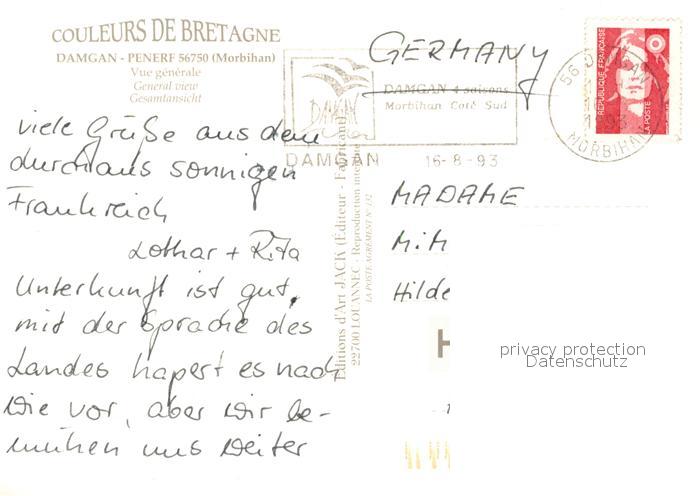 COULEURS DE BRETAGNE
DAMGAN - PENERF 56750 (Morbihan)
Vue générale
General view
Gesamtansicht
viele Grüße aus dem
durchaus sonnigen
Frankreich
Lothar + Rita
Unterkunft ist gut,
mit der Sprache des
Landes hapert es nach
wie vor, aber wir be-
mühen uns weiter
Editions d'Art JACK (Éditeur - Fabricant)
22700 LOUANNEC - Reproduction interdite
LA POSTE AGREMENT N° 132
GERMANY
DAMGAN 4 saisons
Morbihan Coté Sud
DAMGAN
DAMGAN 16-8-93
56
1993
MORBIHAN
REPUBLIQUE FRANÇAISE
LA POSTE
MADAME
Hilde
H
privacy protection
Datenschutz